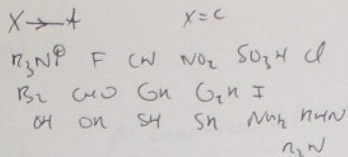 X → A X = C
R₃N⊕ F CN NO₂ SO₃H Cl
Br CHO I
OH OR SH SR NH₂ RHN
R₂N